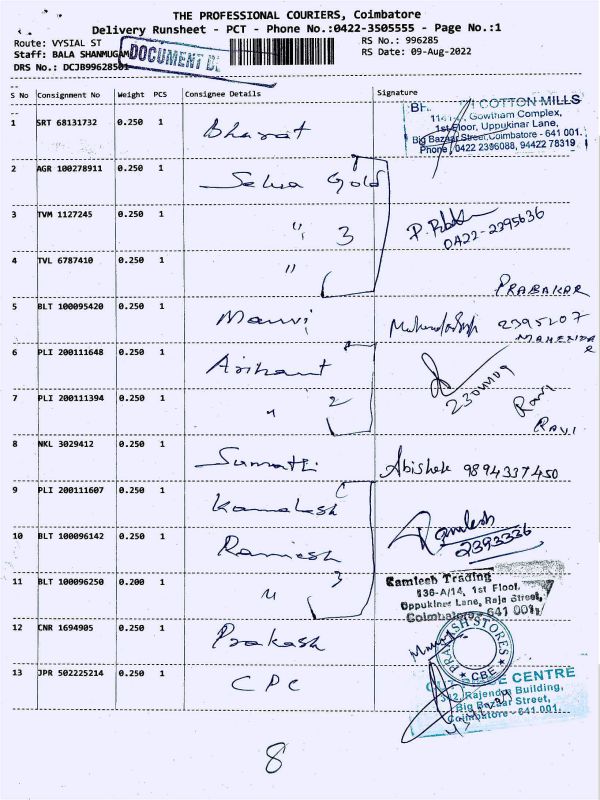 THE PROFESSIONAL COURIERS, Coimbatore
Delivery Runsheet - PCT - Phone No.:0422-3505555 - Page No.:1
Route: VYSIAL ST
RS No.: 996285
Staff: BALA SHANMUGAM
DOCUMENT
RS Date: 09-Aug-2022
DRS No.: DCJB99628501
S No Consignment No Weight PCS Consignee Details Signature
1 SRT 68131732 0.250 1 Bharat
COTTON MILLS
Gowtham Complex,
1st Floor, Uppukinar Lane,
Big Bazaar Street, Coimbatore - 641 001.
Phone : 0422 2396088, 94422 78319
2 AGR 100278911 0.250 1 Selva Gold
3 TVM 1127245 0.250 1 " 3
0422-2395636
4 TVL 6787410 0.250 1 "
PRABAKAR
5 BLT 100095420 0.250 1 2395207
6 PLI 200111648 0.250 1 Arihant
7 PLI 200111394 0.250 1 " 2
Ravi
RAVI
8 NKL 3029412 0.250 1 Sumathi Abishek 9894337450
9 PLI 200111607 0.250 1 Kamalesh
10 BLT 100096142 0.250 1 Ramesh
2393336
11 BLT 100096250 0.200 1 " 3
Kamlesh Trading
136-A/14, 1st Floor,
Oppukiner Lane, Raja Street,
Coimbatore - 641 001.
12 CNR 1694905 0.250 1 Prakash
PRAKASH STORES
CBE
13 JPR 502225214 0.250 1 CPC
CENTRE
Rajendra Building,
Big Bazaar Street,
Coimbatore - 641 001.
8